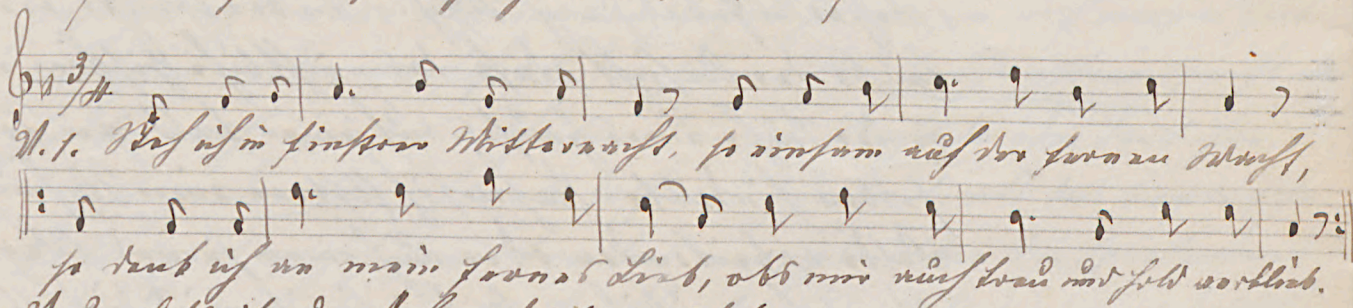 3/4
V. 1. Steh ich in finstrer Mitternacht, so einsam auf der fernen Wacht,
so denk ich an mein fernes Lieb, obs mir auch treu und hold verblieb.